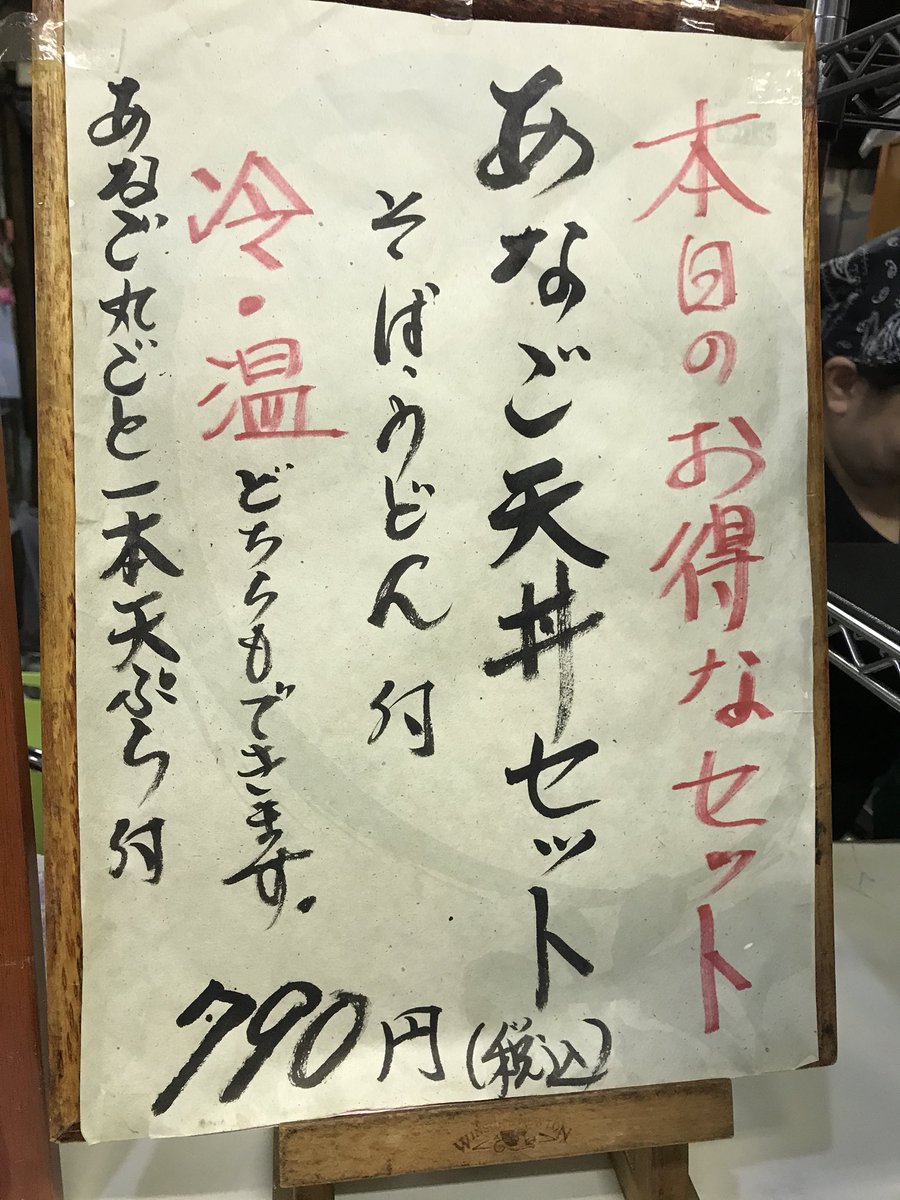 本日のお得なセット
あなご天丼セット
そば、うどん付
冷・温どちらもできます。
あなご丸ごと一本天ぷら付
790円(税込)